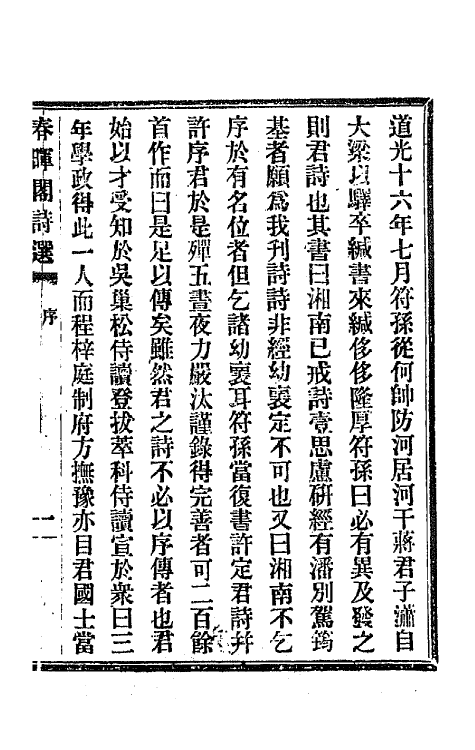 道光十六年七月符孫從何帥防河居河干蔣君子瀟自
大梁以驛卒緘書來緘侈侈隆厚符孫曰必有異及發之
則君詩也其書曰湘南已戒詩壹思慮研經有潘別駕筠
基者願爲我刊詩詩非經幼裒定不可也又曰湘南不乞
序於有名位者但乞諸幼裒耳符孫當復書許定君詩幷
許序君於是殫五晝夜力嚴汰謹錄得完善者可二百餘
首作而曰是足以傳矣雖然君之詩不必以序傳者也君
始以才受知於吳巢松侍讀登拔萃科侍讀宣於衆曰三
年學政得此一人而程梓庭制府方撫豫亦目君國士當
春暉閣詩選
序
一